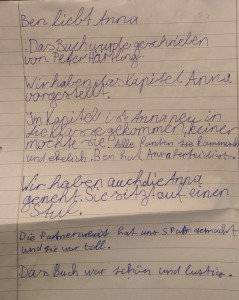 Ben liebt Anna
Das Buch wurde geschrieben
von Peter Härtling.
Wir haben das Kapitel Anna
vorgestellt.
Im Kapitel ist Anna neu in
die Klasse gekommen, keiner
mochte sie. Alle fanden sie
und ekelich. Ben hat Anna verteidigt.
Wir haben auch die Anna
Sie sitzt auf einen
Stul.
Die Partnerarbeit hat uns Spaß gemacht
und sie war toll.
Das Buch war schön und lustig.